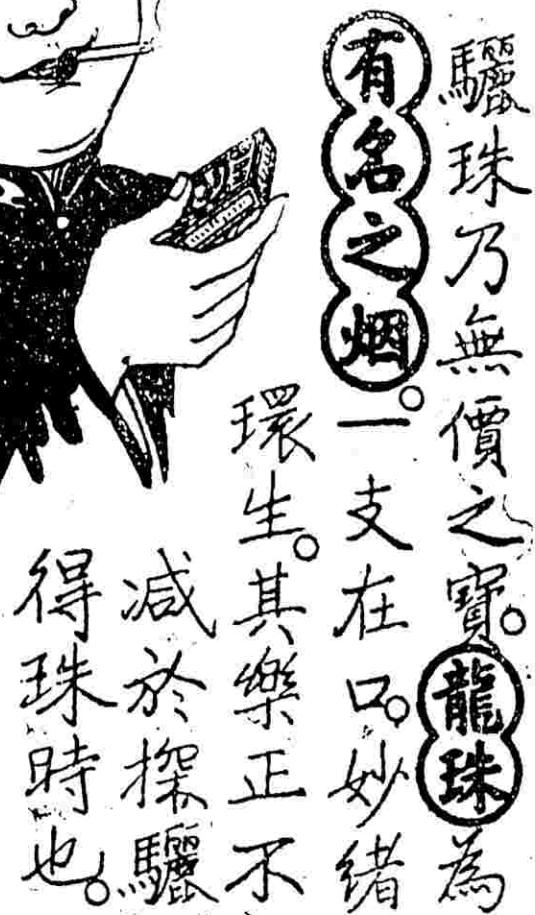 驪珠乃無價之寶。龍珠為
有名之烟。一支在口。妙緒
環生。其樂正不
减於探驪
得珠時也。